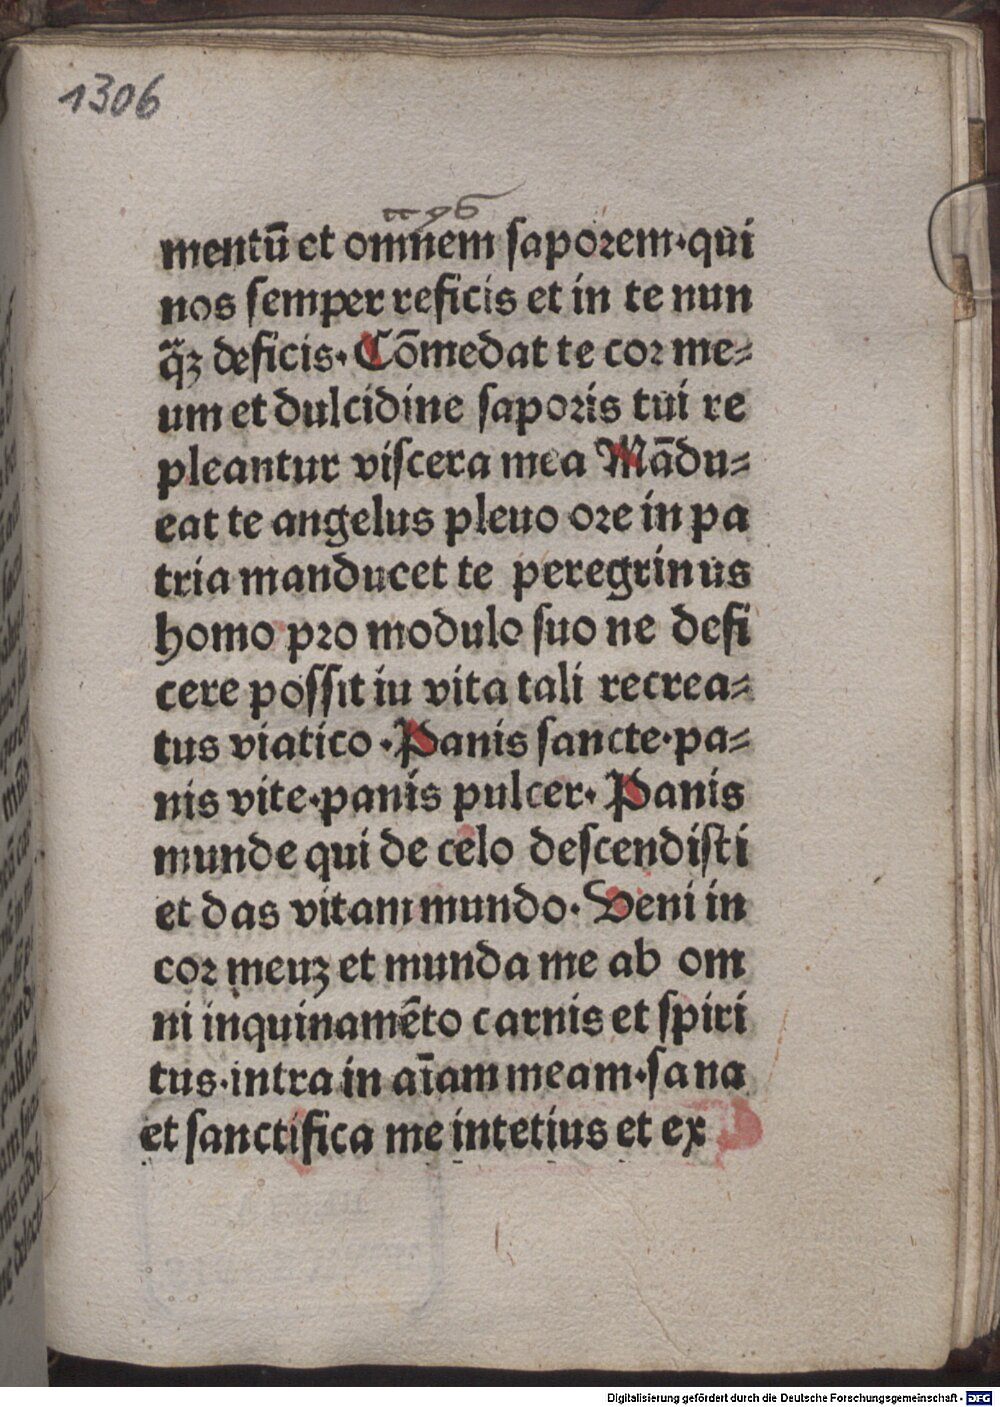 1306
mentū et omnem saporem·qui
nos semper reficis et in te nun
q̄ꝫ deficis· Cōmedat te cor me⸗
um et dulcidine saporis tui re
pleantur viscera mea Mādu⸗
eat te angelus pleuo ore in pa
tria manducet te peregrinus
homo pro modulo suo ne defi
cere possit iu vita tali recrea⸗
tus viatico · Panis sancte·pa⸗
nis vite·panis pulcer· Panis
munde qui de celo descendisti
et das vitam mundo· Veni in
cor meuꝫ et munda me ab om
ni inquinamēto carnis et spiri
tus·intra in aīam meam·sana
et sanctifica me intetius et ex
Digitalisierung gefördert durch die Deutsche Forschungsgemeinschaft - DFG